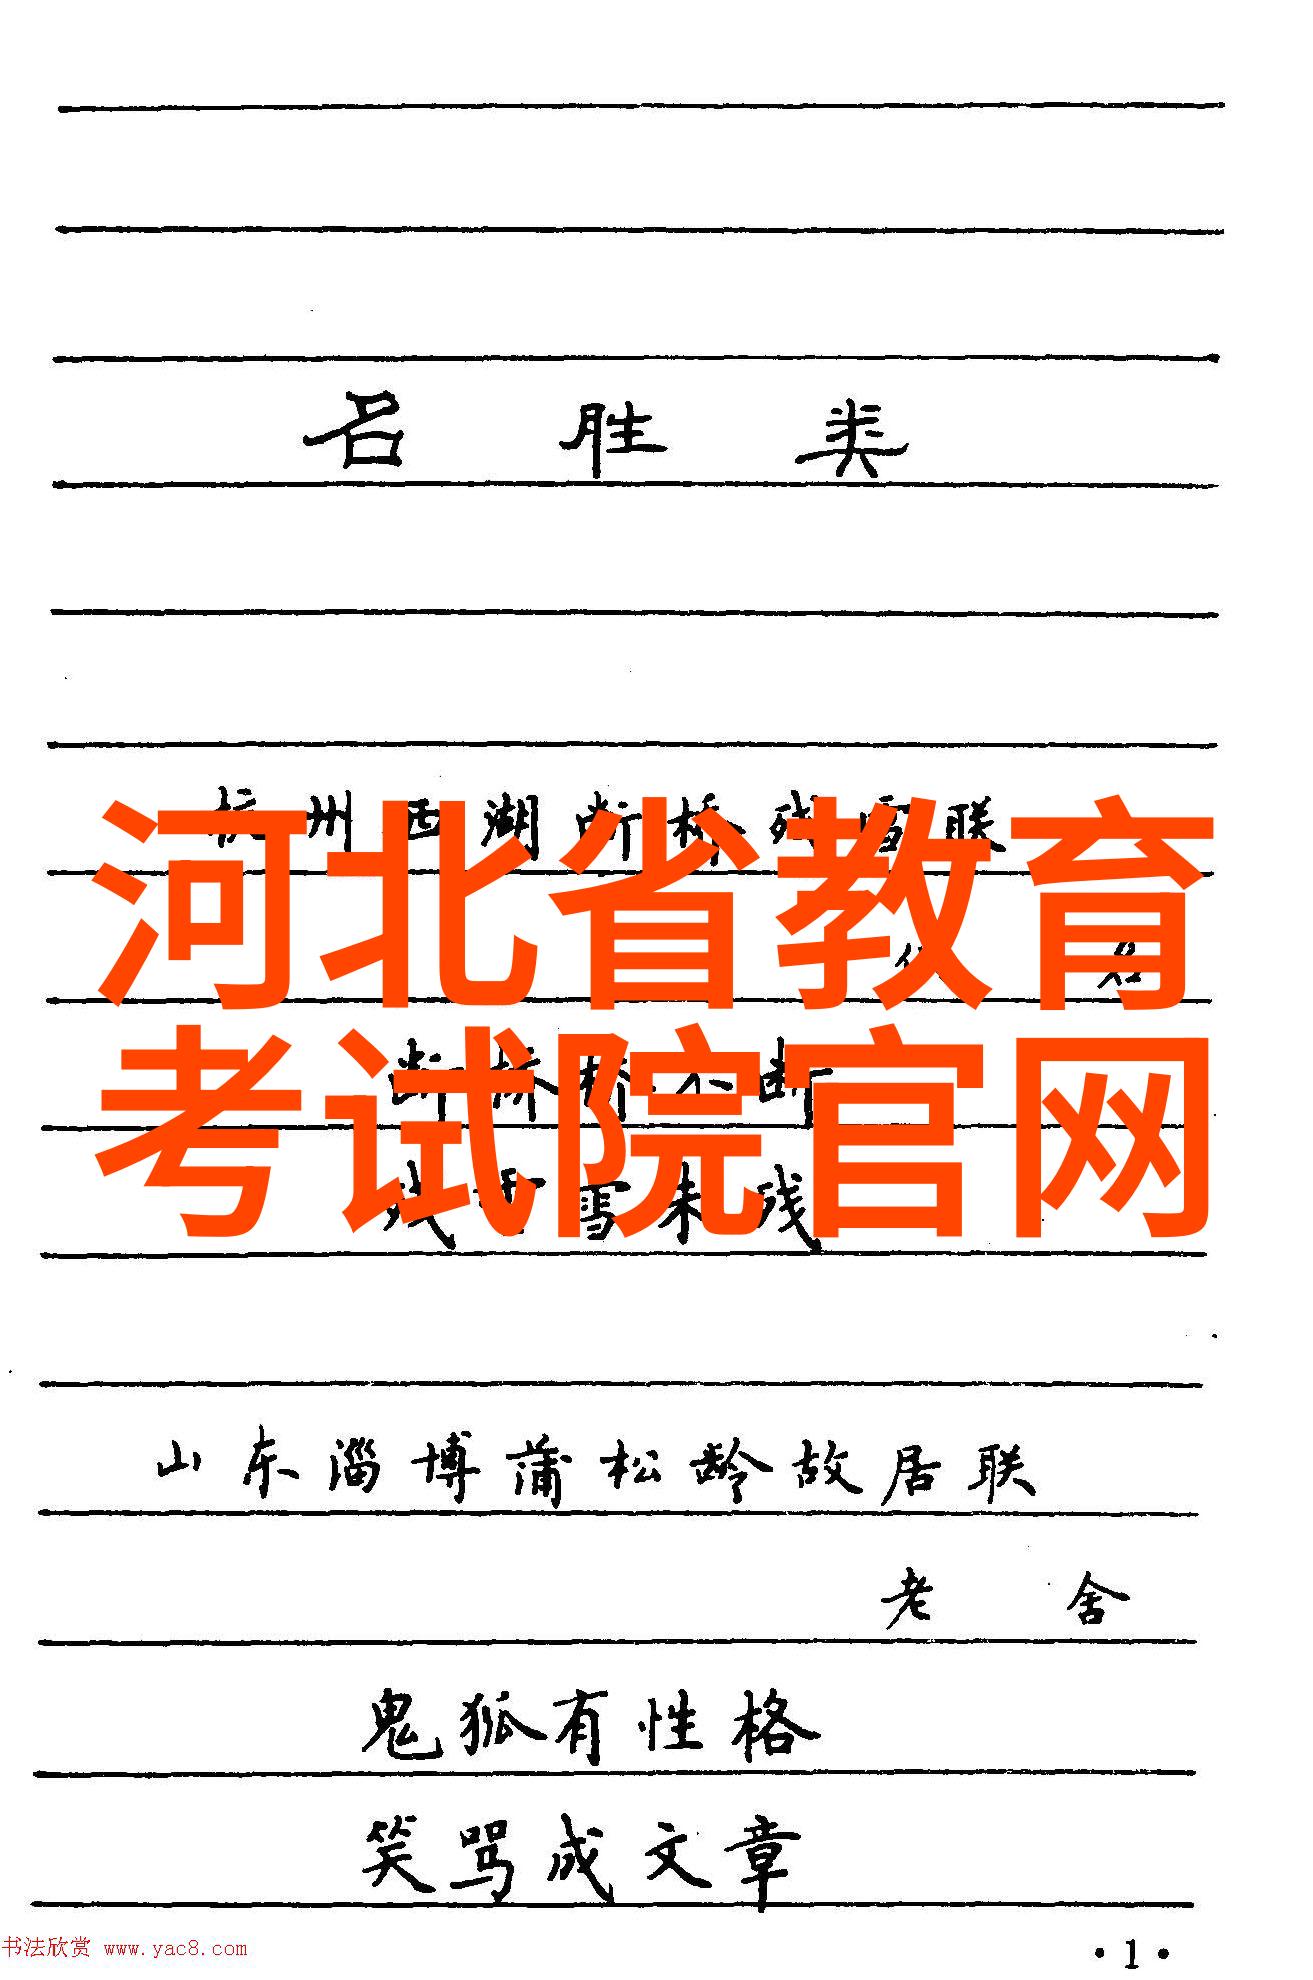 名胜类
杭州西湖断桥残雪联
河北省教育
佚名
考试院官网
断桥桥不断
残雪雪未残
山东淄博蒲松龄故居联
老舍
鬼狐有性格
笑骂成文章
书法欣赏 www.yac8.com
·1·